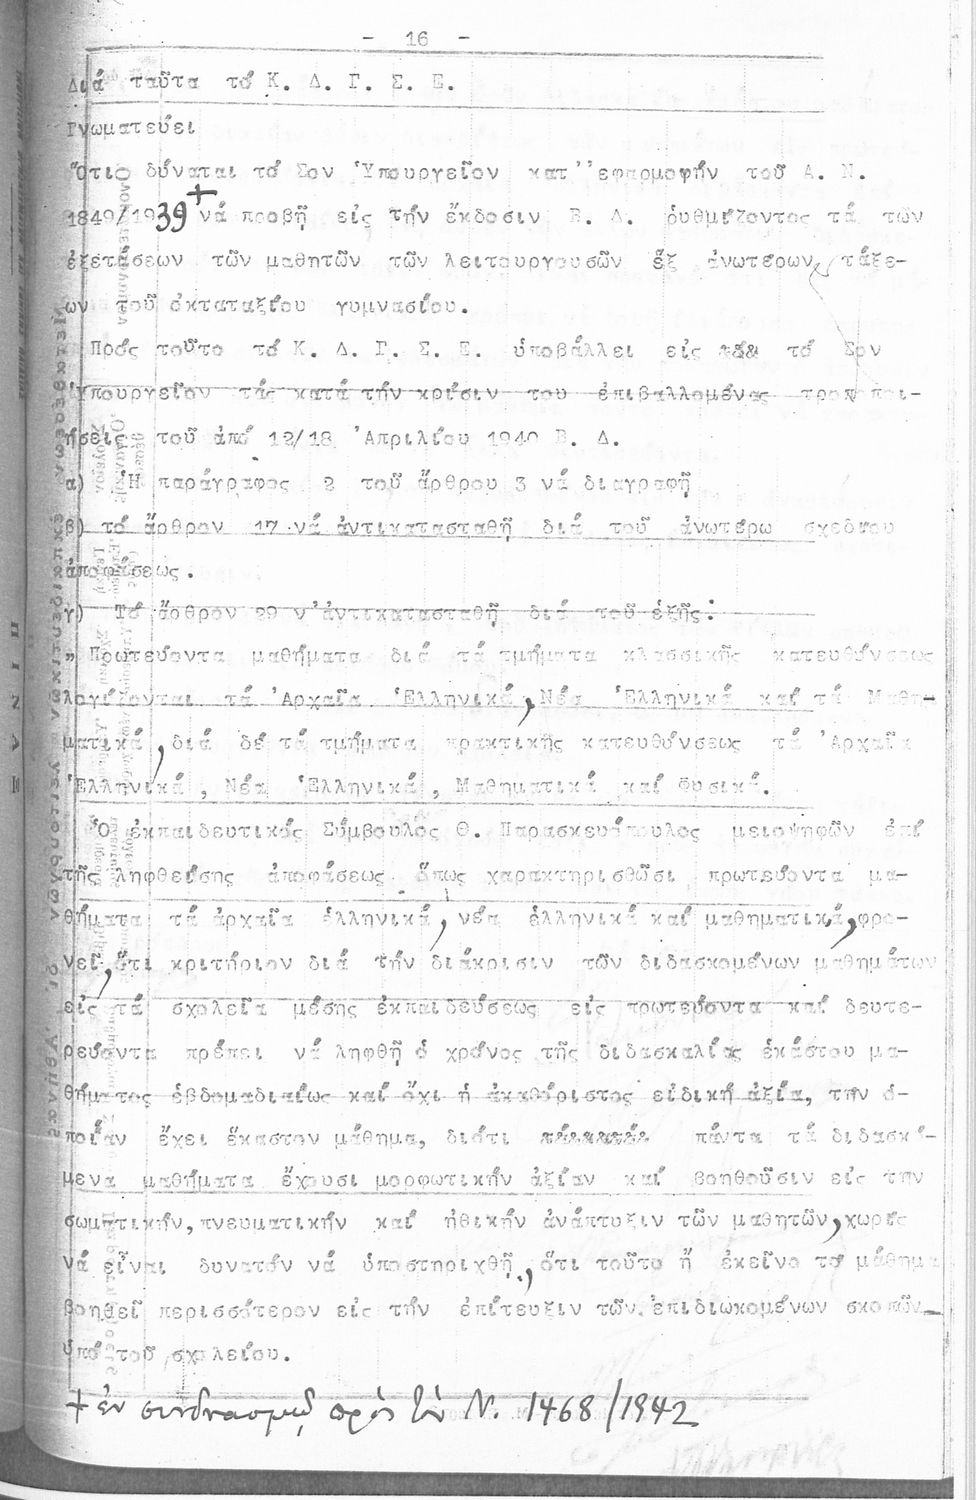 - 16 -
Διά ταῦτα τό Κ. Δ. Γ. Σ. Ε.
Γνωματεύει
Ὅτι δύναται τό Σον Ὑπουργεῖον κατ'' ἐφαρμοφήν τοῦ Α. Ν.
1849/1939 + νά προβῇ εἰς τήν ἔκδοσιν Β. Δ. ῥυθμίζοντος τά τῶν
ἐξετάσεων τῶν μαθητῶν τῶν λειτουργουσῶν ἕξ ἀνωτέρων τάξε-
ων τοῦ ὀκταταξίου γυμνασίου.
Πρός τοῦτο τό Κ. Δ. Γ. Σ. Ε. ὑποβάλλει εἰς τό Σον
Ὑπουργεῖον τάς κατά τήν κρίσιν του ἐπιβαλλομένας τροποποι-
ήσεις τοῦ ἀπό 12/18 Ἀπριλίου 1940 Β. Δ.
α) Ἡ παράγραφος 2 τοῦ ἄρθρου 3 νά διαγραφῇ
β) τό ἄρθρον 17 νά ἀντικατασταθῇ διά τοῦ ἀνωτέρω σχεδίου
ἀποφάσεως.
γ) Τό ἄρθρον 29 ν'ἀντικατασταθῇ διά τοῦ ἑξῆς:
" Πρωτεύοντα μαθήματα διά τά τμήματα κλασσικῆς κατευθύνσεως
λογίζονται τά Ἀρχαῖα Ἑλληνικά, Νέα Ἑλληνικά καί τά Μαθη-
ματικά, διά δέ τά τμήματα πρακτικῆς κατευθύνσεως τά Ἀρχαῖα
Ἑλληνικά, Νέα Ἑλληνικά, Μαθηματικά καί Φυσικά.
Ὁ ἐκπαιδευτικός Σύμβουλος Θ. Παρασκευόπουλος μειοψηφῶν ἐπί
τῆς ληφθείσης ἀποφάσεως ὅπως χαρακτηρισθῶσι πρωτεύοντα μα-
θήματα τά ἀρχαῖα ἑλληνικά, νέα ἑλληνικά καί μαθηματικά, φρο-
νεῖ, ὅτι κριτήριον διά τήν διάκρισιν τῶν διδασκομένων μαθημάτων
εἰς τά σχολεῖα μέσης ἐκπαιδεύσεως εἰς πρωτεύοντα καί δευτε-
ρεύοντα πρέπει νά ληφθῇ ὁ χρόνος τῆς διδασκαλίας ἑκάστου μα-
θήματος ἑβδομαδιαίως καί ὄχι ἡ ἀκαθόριστος εἰδική ἀξία, τήν ὁ-
ποίαν ἔχει ἕκαστον μάθημα, διότι πάντα τά διδασκό-
μενα μαθήματα ἔχουσι μορφωτικήν ἀξίαν καί βοηθοῦσιν εἰς τήν
σωματικήν, πνευματικήν καί ἠθικήν ἀνάπτυξιν τῶν μαθητῶν, χωρίς
νά εἶναι δυνατόν νά ὑποστηριχθῇ, ὅτι τοῦτο ἤ ἐκεῖνο τό μάθημα
βοηθεῖ περισσότερον εἰς τήν ἐπίτευξιν τῶν ἐπιδιωκομένων σκοπῶν
ὑπό τοῦ σχολείου.
+ ἐν συνδυασμῷ πρός τόν Ν. 1468/1942